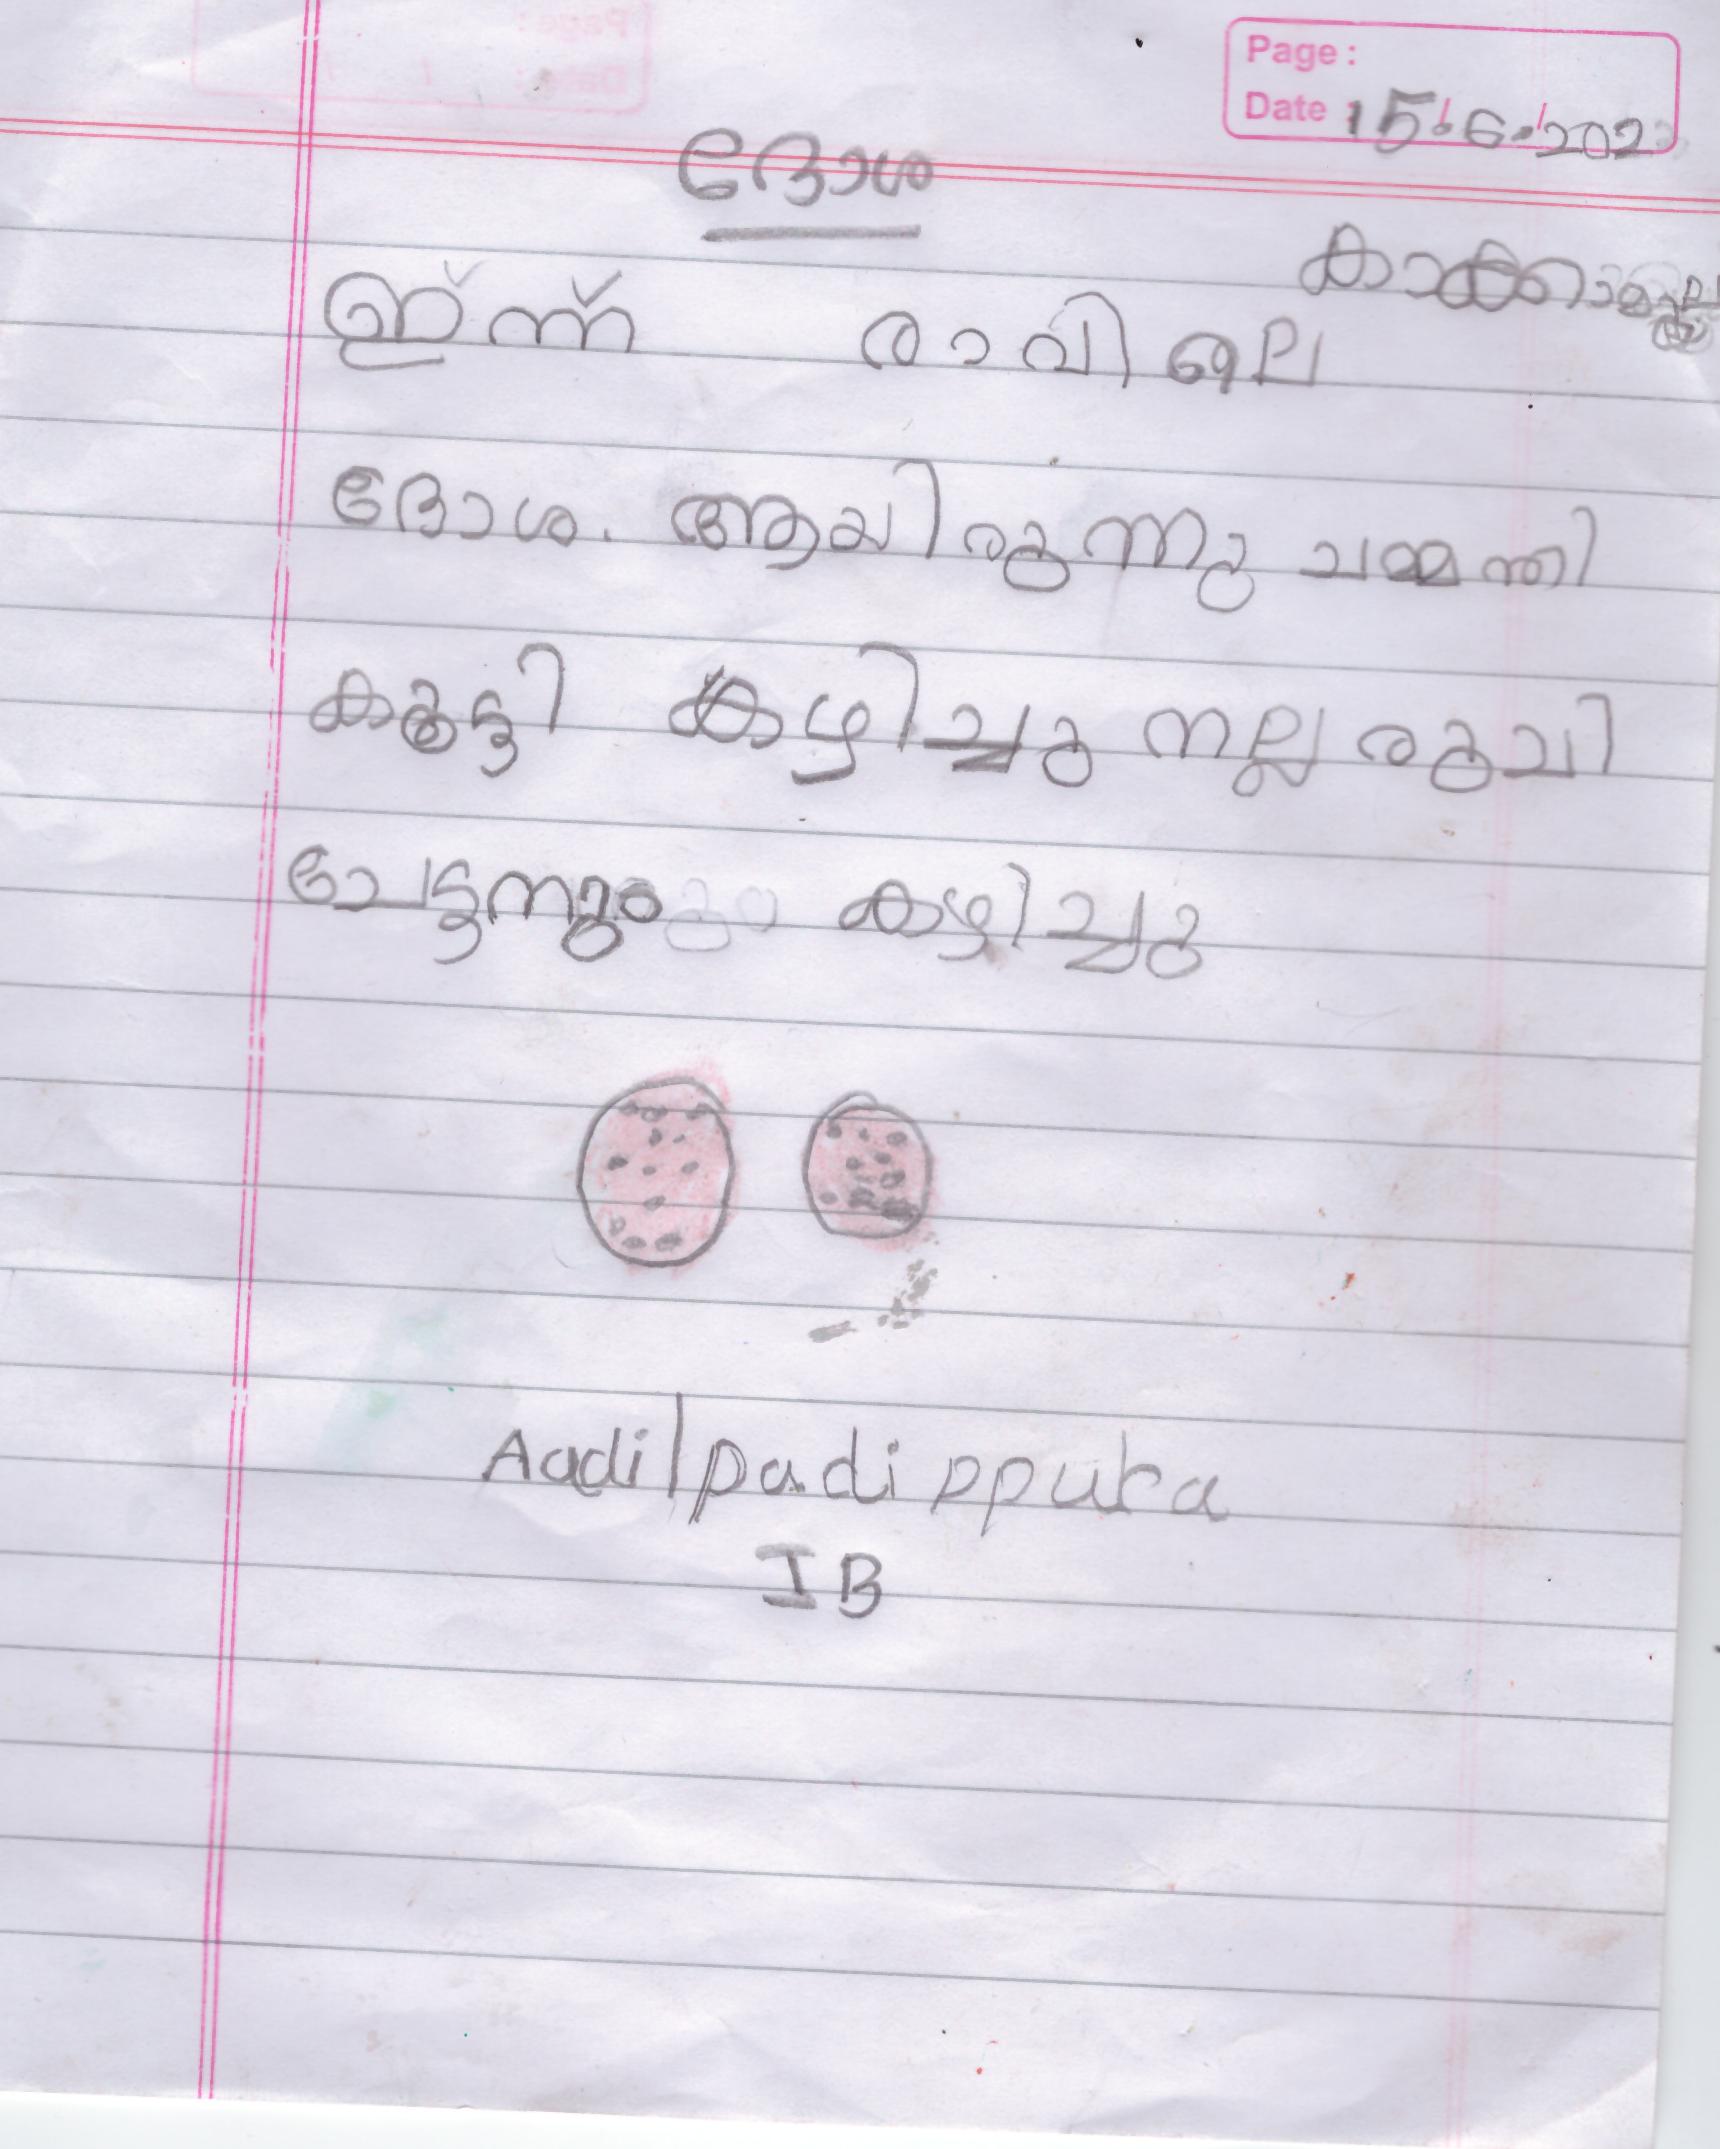 Page :
Date : 15.6.202
ദോശ
ഇന്ന് രാവിലെ
ദോശ. ആയിരുന്നു ചമ്മന്തി
കൂട്ടി കഴിച്ചു നല്ല രുചി
ചേട്ടനും കഴിച്ചു
Aadil padippura
I B